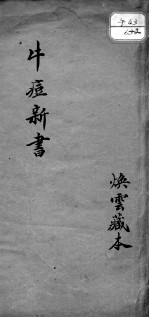 牛痘新書
煥雲藏本